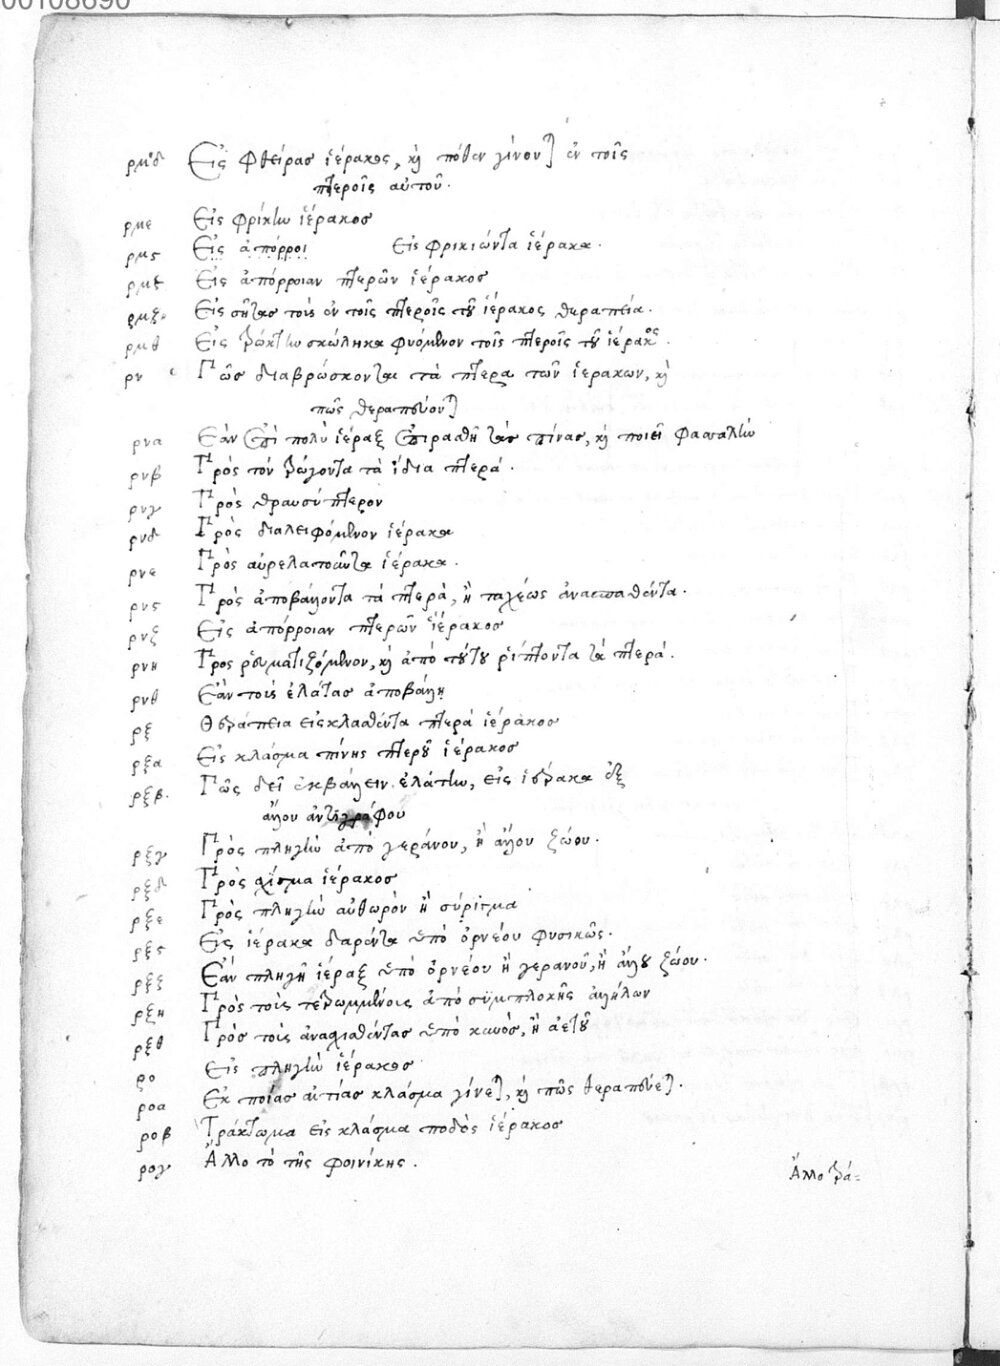 00108690
ρμδ Εἰς φθείρας ἱέρακος, κὴ πόθεν γίνονται ἐν τοῖς
πτεροῖς αὐτοῦ.
ρμε Εἰς φρίκην ἱέρακος
ρμς Εἰς ἀπόρροι Εἰς φρικιώντα ἱέρακα.
ρμζ Εἰς ἀπόρροιαν πτερῶν ἱέρακος
ρμη Εἰς σῆτας τοὺς ἐν τοῖς πτεροῖς τοῦ ἱέρακος θεραπεία.
ρμθ Εἰς τρώκτην σκώληκα φυόμενον τοῖς πτεροῖς τοῦ ἱέρακος.
ρν Πῶς διαβρώσκονται τὰ πτερα τῶν ἱερακων, κὴ
πῶς θεραπεύονται
ρνα Ἐὰν ἐπὶ πολὺ ἱέραξ πίνας, κὴ ποιεῖ
ρνβ Πρὸς τὸν τρώγοντα τὰ ἴδια πτερά.
ρνγ Πρὸς θραυσύπτερον
ρνδ Πρὸς διαλειφόμενον ἱέρακα
ρνε Πρὸς ἱέρακα.
ρνς Πρὸς ἀποβάλλοντα τὰ πτερὰ, ἢ ταχέως ἀνασπαθέντα.
ρνζ Εἰς ἀπόρροιαν πτερῶν ἱέρακος
ρνη Προς ῥευματιζόμενον, κὴ ἀπὸ τούτου ῥίπτοντα τὰ πτερά.
ρνθ Ἐὰν τοὺς ἐλάτας ἀποβάλλῃ
ρξ Θεράπεια εἰς κλασθέντα πτερὰ ἱέρακος
ρξα Εἰς κλάσμα πίνης πτεροῦ ἱέρακος
ρξβ. Πῶς δεῖ ἐκβάλλειν ἐλάτην, εἰς ἱέρακα ἐξ
ἄλλου ἀντιγράφου
ρξγ Πρὸς πληγὴν ἀπὸ γεράνου, ἢ ἄλλου ζώου.
ρξδ Πρὸς σχίσμα ἱέρακος
ρξε Πρὸς πληγὴν αὐθωρὸν ἢ σύρισμα
ρξς Εἰς ἱέρακα δαρέντα ὑπὸ ὀρνέου φυσικῶς.
ρξζ Ἐάν πληγῇ ἱέραξ ὑπὸ ὀρνέου ἢ γερανοῦ, ἢ ἄλλου ζώου.
ρξη Πρὸς τοὺς τετρωμμένους ἀπὸ συμπλοκῆς ἀλλήλων
ρξθ Πρὸς τοὺς ἀνασχισθέντας ὑπὸ κυνὸς, ἢ ἀετοῦ
ρο Εἰς πληγὴν ἱέρακος
ροα Ἐκ ποίας αἰτίας κλάσμα γίνεται, κὴ πῶς θεραπεύεται.
ροβ Τράκτωμα εἰς κλάσμα ποδὸς ἱέρακος
ρογ Ἄλλο τὸ τῆς φοινίκης.
Ἄλλο τρά=